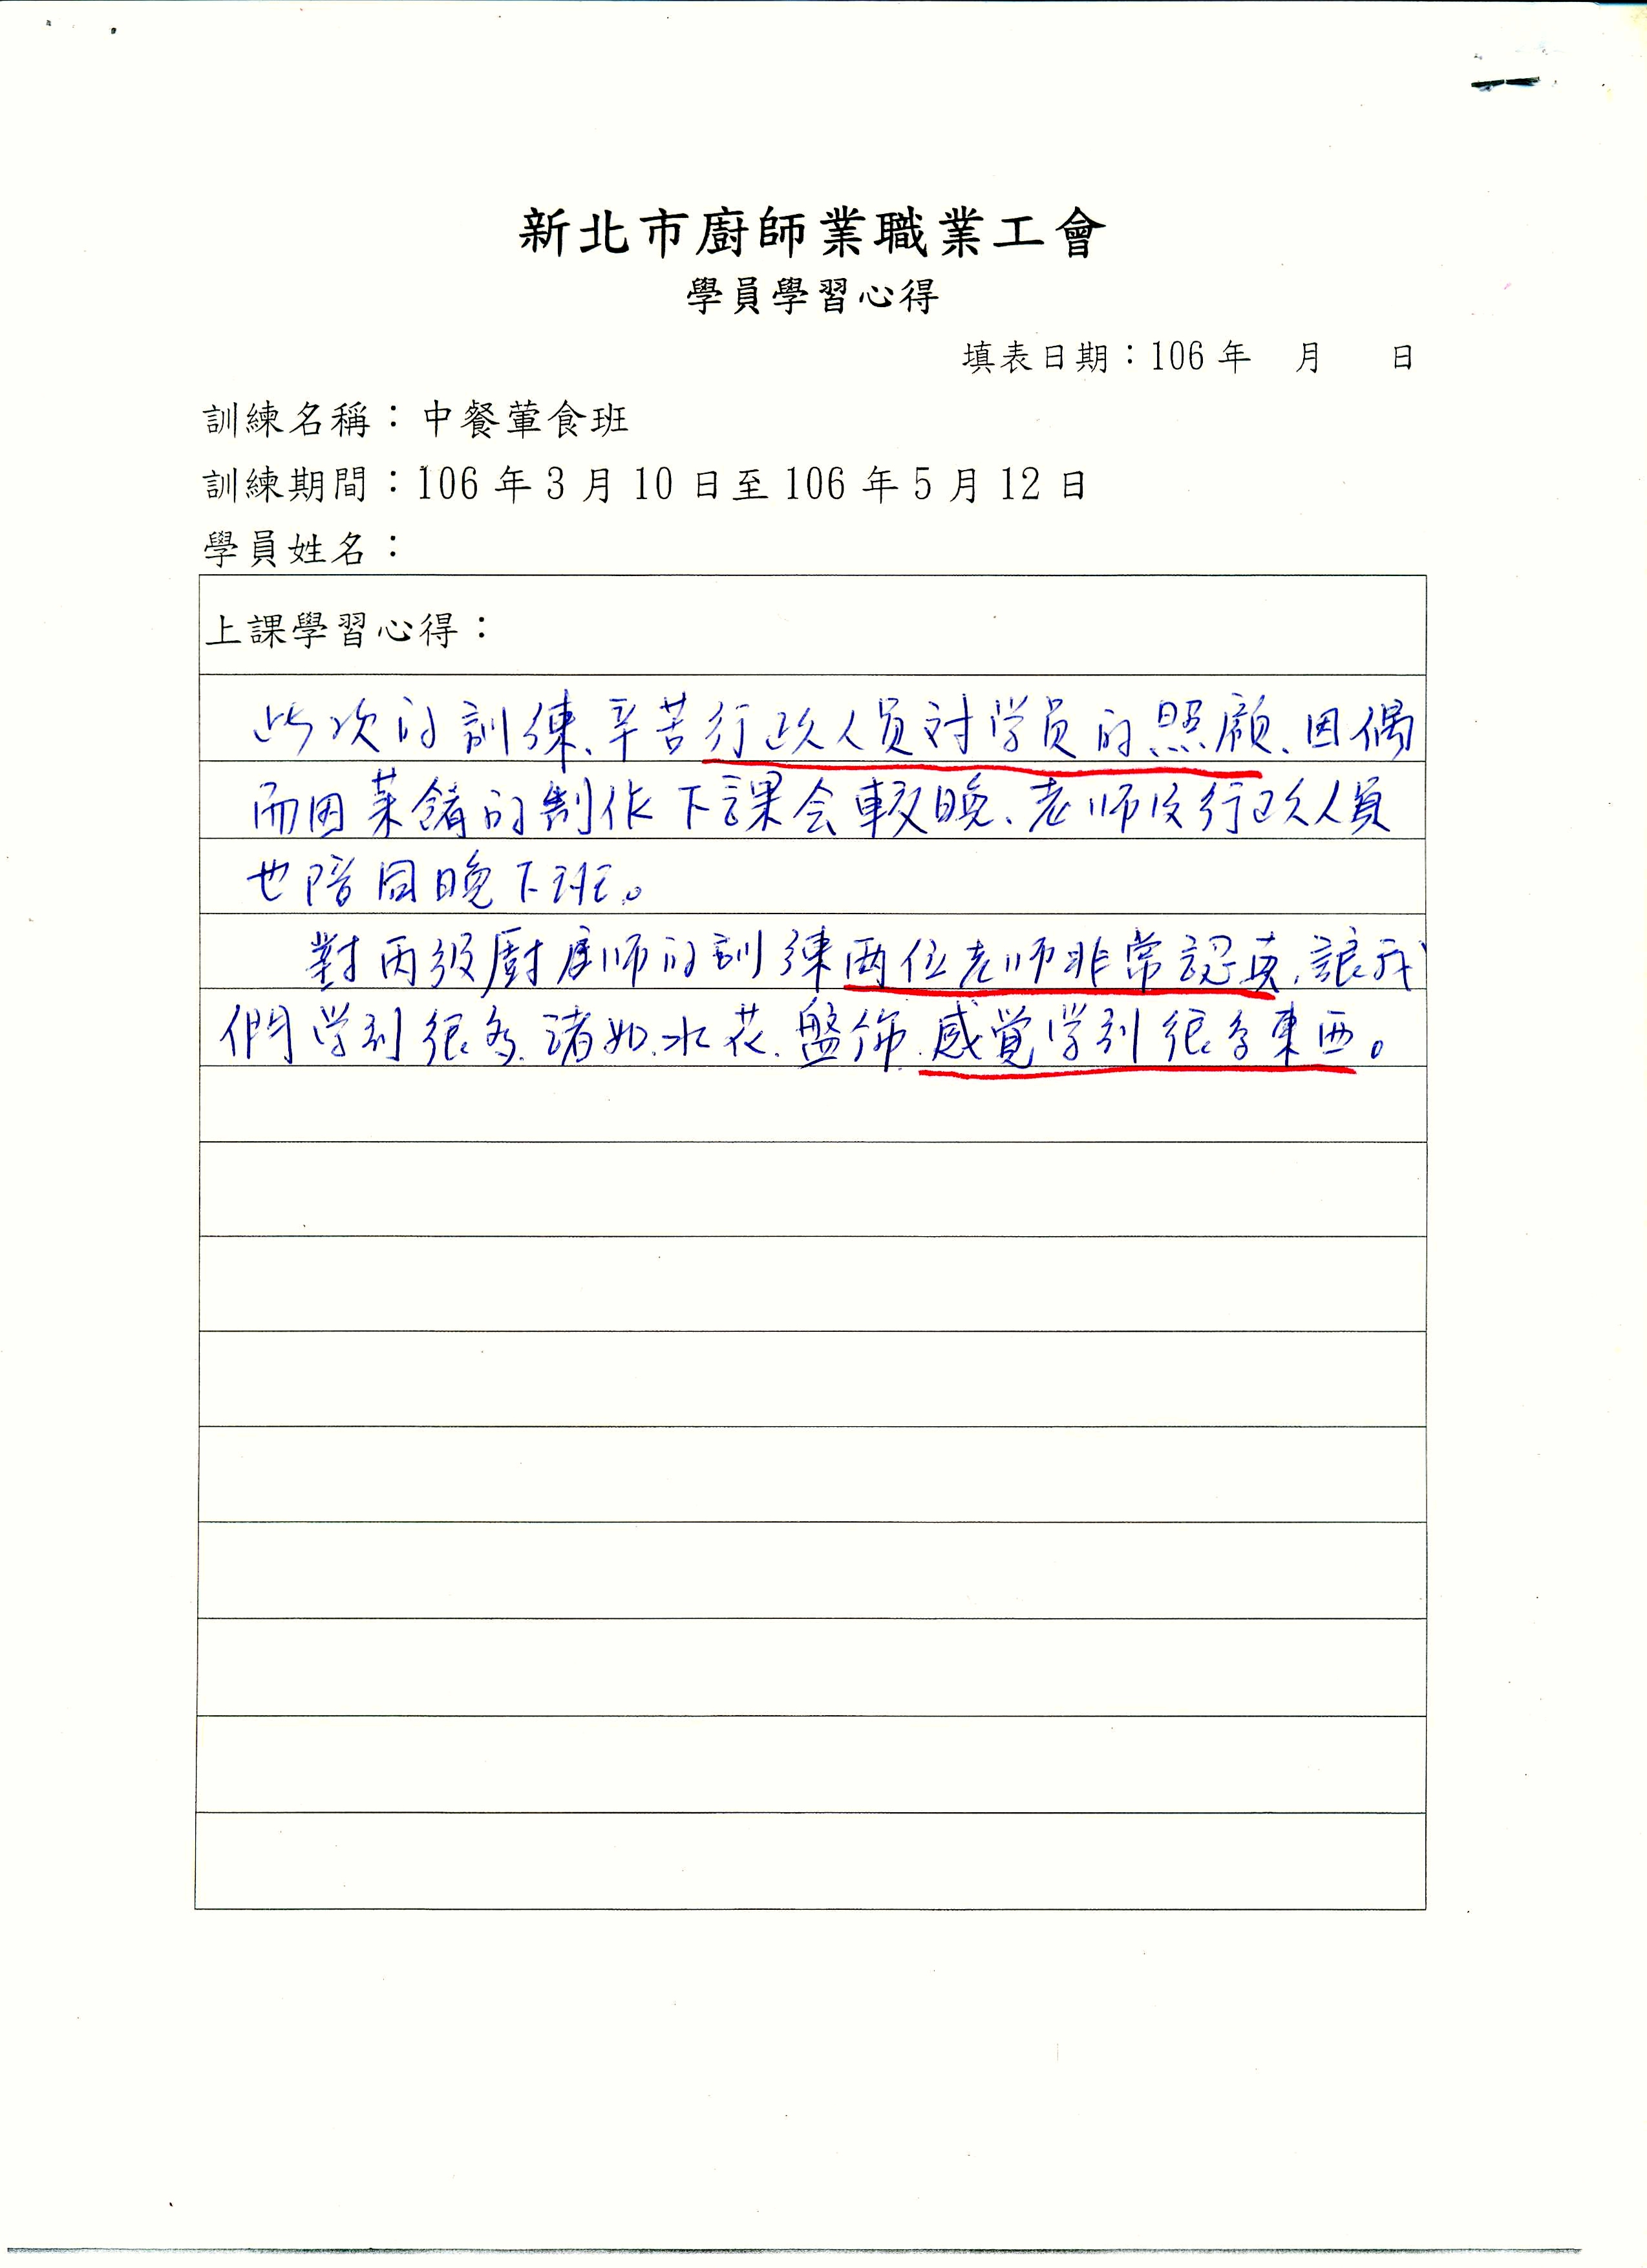 新北市廚師業職業工會
學員學習心得
填表日期：106 年 月 日
訓練名稱：中餐葷食班
訓練期間：106 年 3 月 10 日至 106 年 5 月 12 日
學員姓名：
上課學習心得：
此次的訓練、辛苦行政人员対学员的照顧、因偶
而因菜餚的製作下課会較晚、老師及行政人員
也陪同晚下班。
對丙級廚師的訓練両位老師非常認真、讓我
們学到很多、諸如、水花、盤佈、感覚学到很多東西。